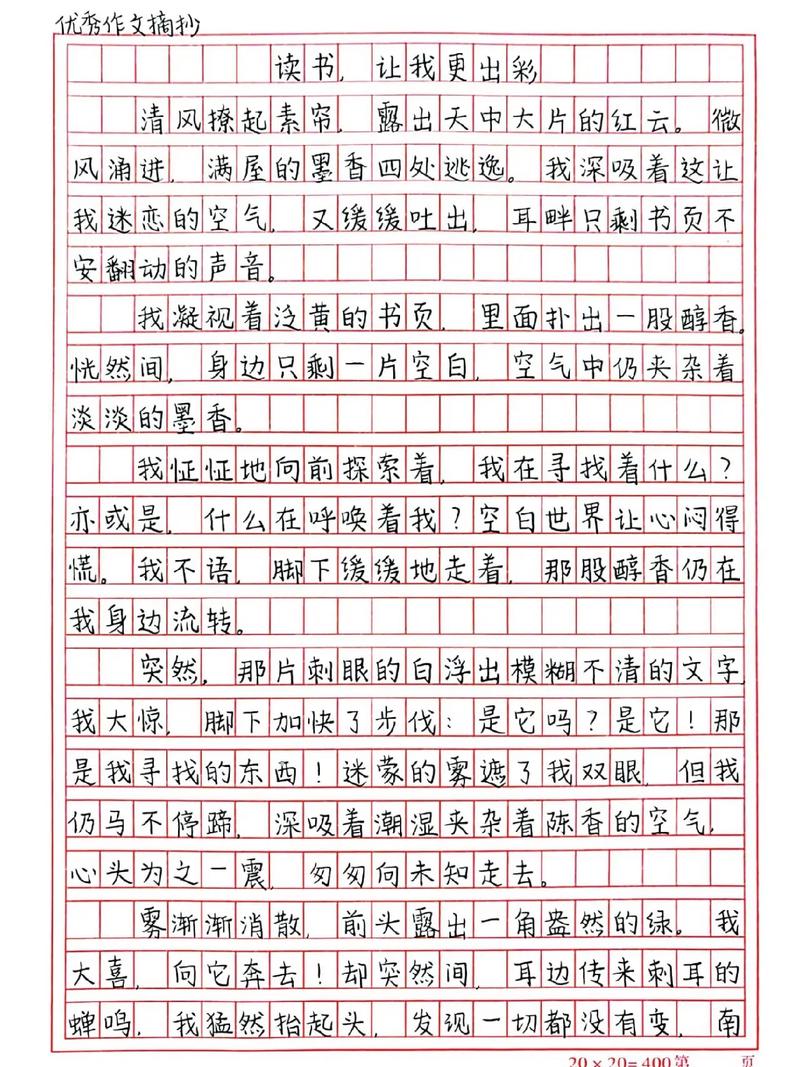 优秀作文摘抄
读书，让我更出彩
清风撩起素帘，露出天中大片的红云。微
风涌进，满屋的墨香四处逃逸。我深吸着这让
我迷恋的空气，又缓缓吐出，耳畔只剩书页不
安翻动的声音。
我凝视着泛黄的书页，里面扑出一股醇香。
恍然间，身边只剩一片空白，空气中仍夹杂着
淡淡的墨香。
我怔怔地向前探索着，我在寻找着什么？
亦或是，什么在呼唤着我？空白世界让心闷得
慌。我不语，脚下缓缓地走着，那股醇香仍在
我身边流转。
突然，那片刺眼的白浮出模糊不清的文字，
我大惊，脚下加快了步伐：是它吗？是它！那
是我寻找的东西！迷蒙的雾遮了我双眼，但我
仍马不停蹄，深吸着潮湿夹杂着陈香的空气，
心头为之一震，匆匆向未知走去。
雾渐渐消散，前头露出一角盎然的绿。我
大喜，向它奔去！却突然间，耳边传来刺耳的
蝉鸣，我猛然抬起头，发现一切都没有变，南
20×20=400 第 页